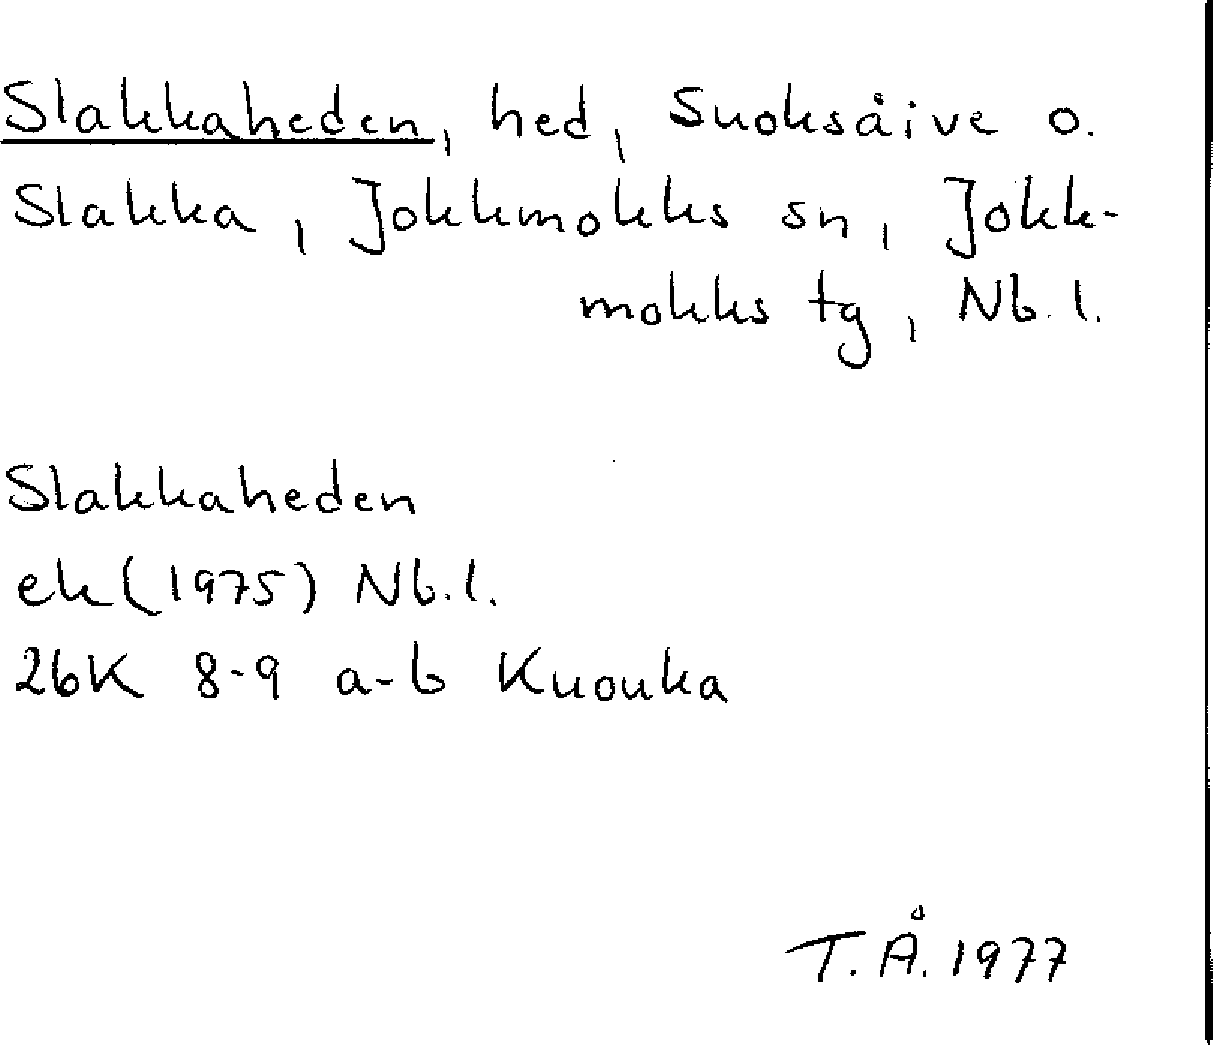 Slakkaheden, hed, Suoksåive o.
Slakka, Jokkmokks sn, Jokk-
mokks tg, Nb. l.
Slakkaheden
ek (1975) Nb. l.
26K 8-9 a-b Kuouka
T. Å. 1977